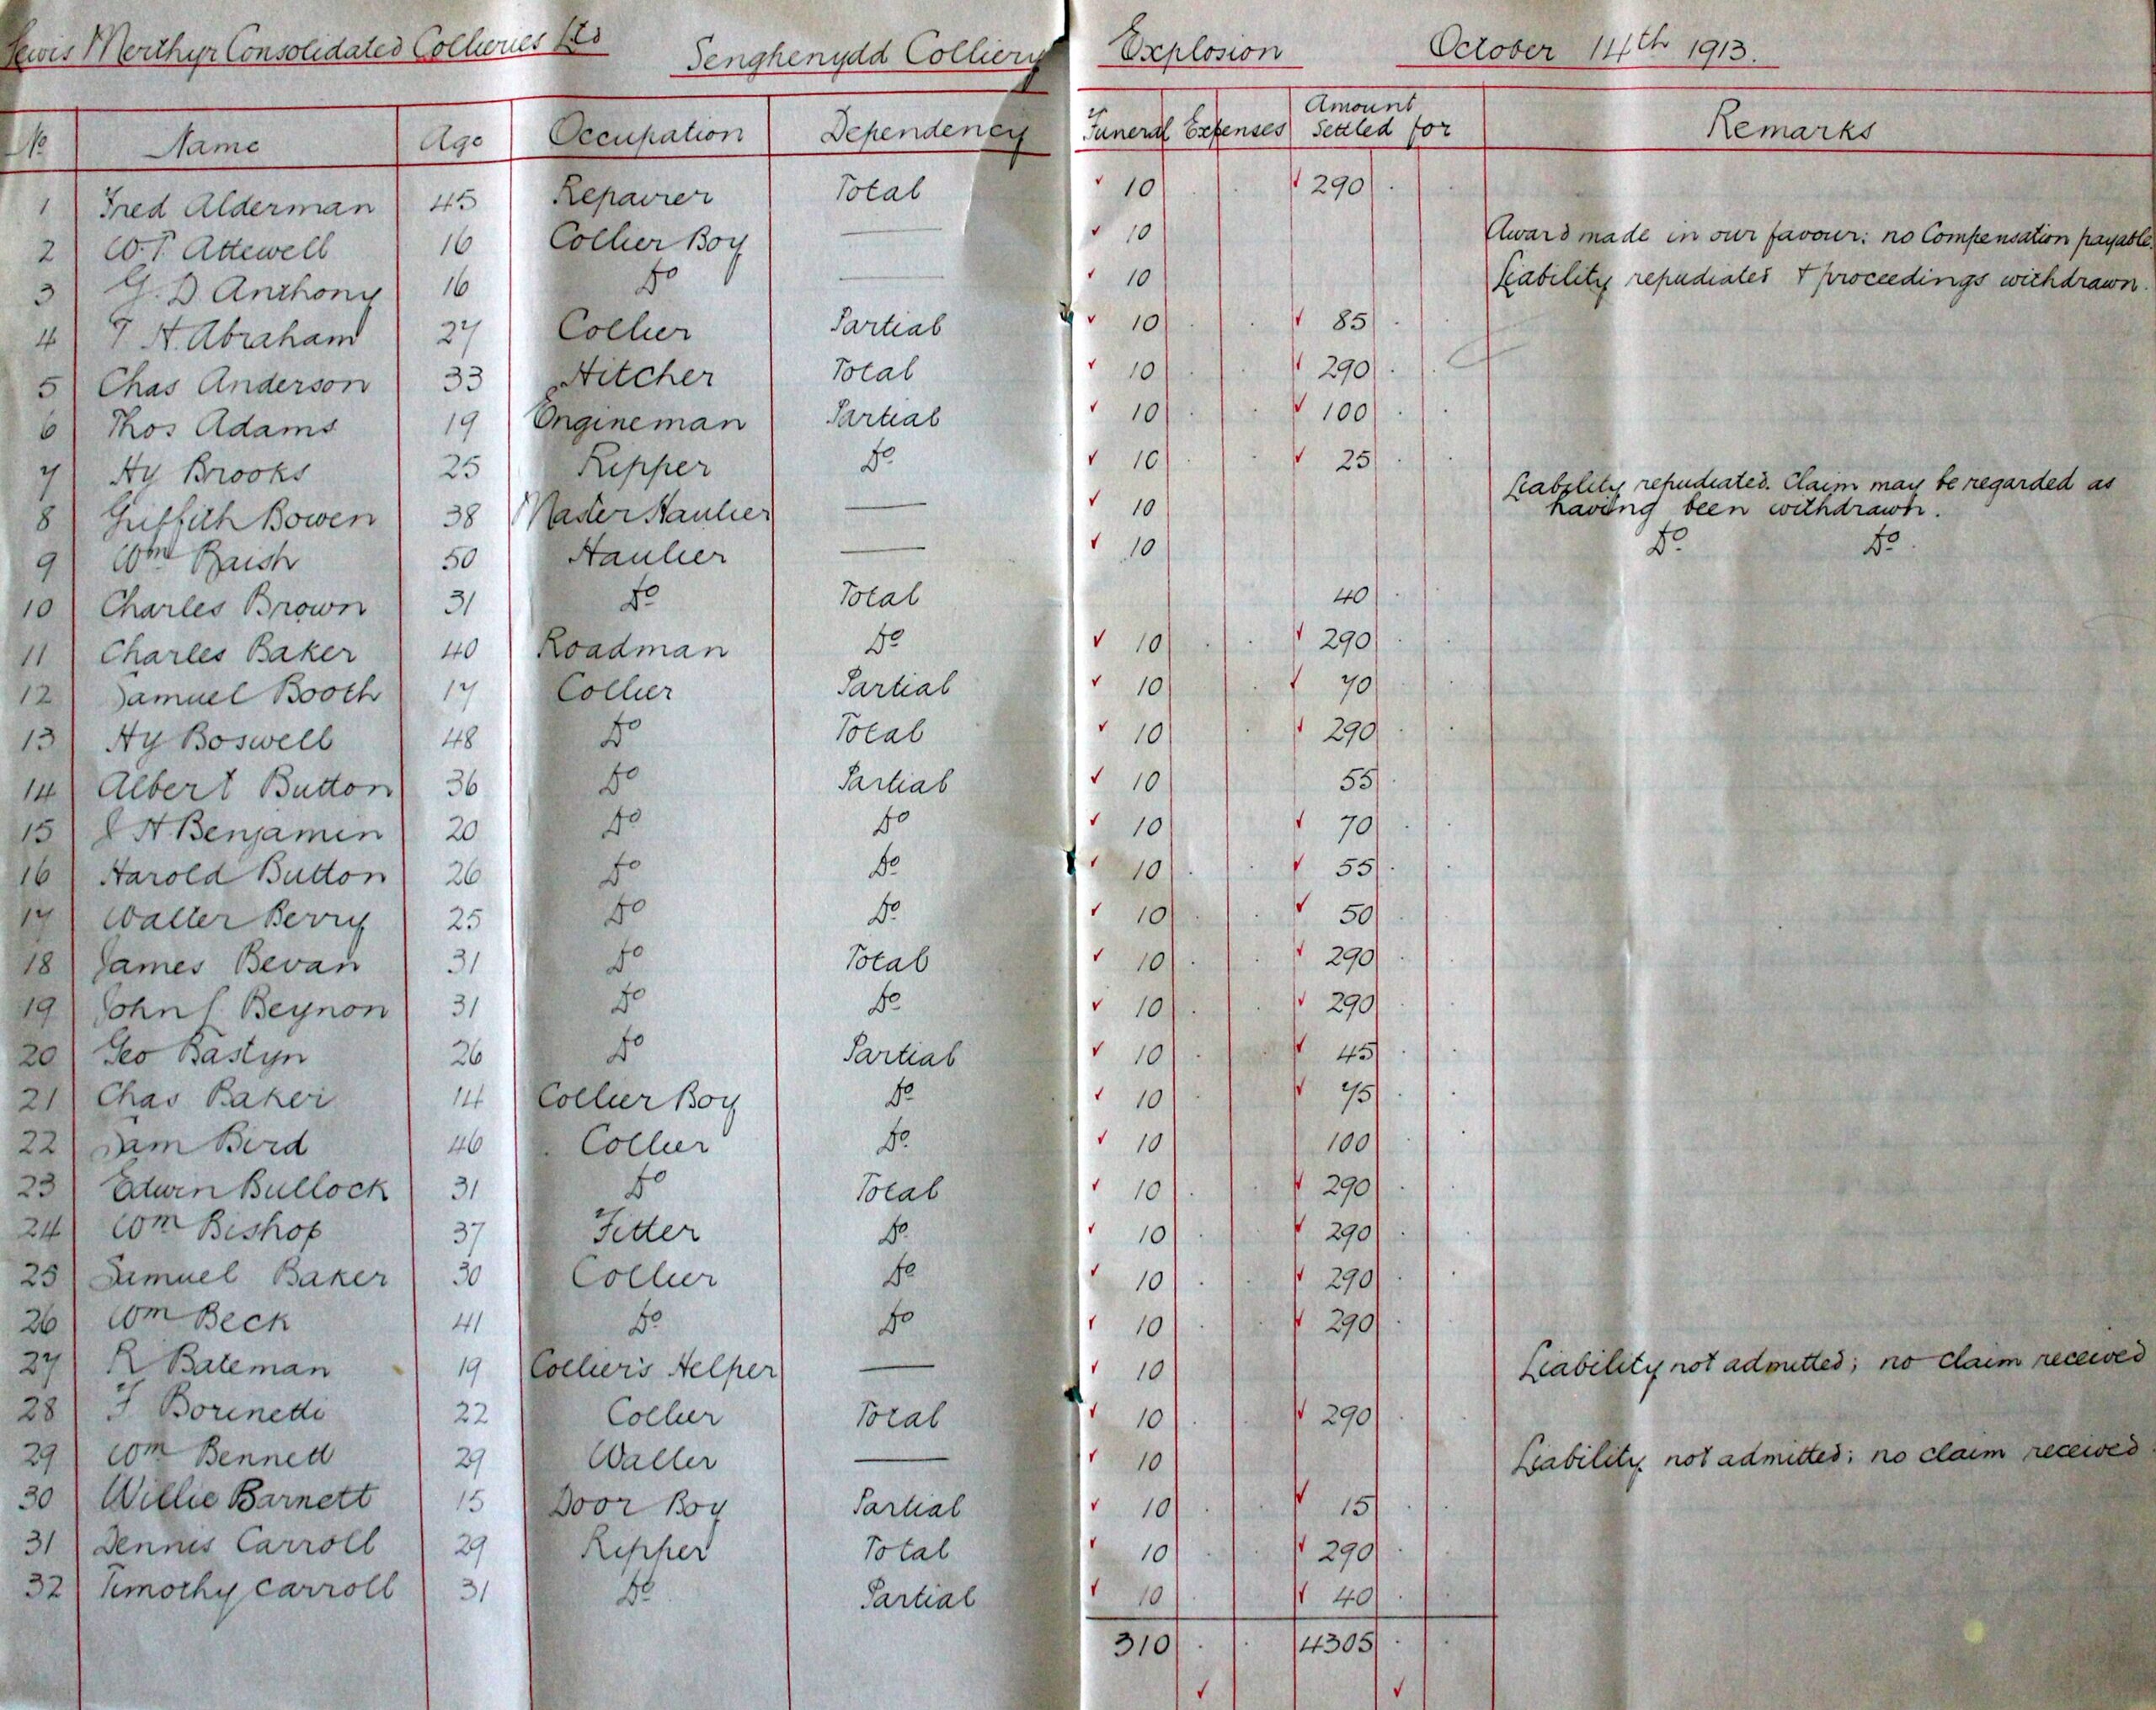 Lewis Merthyr Consolidated Collieries Ltd Senghenydd Colliery Explosion October 14th 1913.
No Name Age Occupation Dependency Funeral Expenses Amount Settled for Remarks
1 Fred Alderman 45 Repairer Total 10 290
2 W.T. Attewell 16 Collier Boy — 10 Award made in our favour: no Compensation payable.
3 G. D Anthony 16 Do — 10 Liability repudiated & proceedings withdrawn.
4 T H. Abraham 27 Collier Partial 10 85
5 Chas Anderson 33 Hitcher Total 10 290
6 Thos Adams 19 Engineman Partial 10 100
7 Hy Brooks 25 Ripper Do 10 25
8 Griffith Bowen 38 Master Haulier — 10 Liability repudiated. Claim may be regarded as
having been withdrawn.
9 Wm Baish 50 Haulier — 10 Do Do
10 Charles Brown 31 Do Total 40
11 Charles Baker 40 Roadman Do 10 290
12 Samuel Booth 17 Collier Partial 10 70
13 Hy Boswell 48 Do Total 10 290
14 Albert Button 36 Do Partial 10 55
15 H Benjamin 20 Do Do 10 70
16 Harold Button 26 Do Do 10 55
17 Walter Berry 25 Do Do 10 50
18 James Bevan 31 Do Total 10 290
19 John Beynon 31 Do Do 10 290
20 Geo Bastyn 26 Do Partial 10 45
21 Chas Baker 14 Collier Boy Do 10 75
22 Sam Bird 46 Collier Do 10 100
23 Edwin Bullock 31 Do Total 10 290
24 Wm Bishop 37 Fitter Do 10 290
25 Samuel Baker 30 Collier Do 10 290
26 Wm Beck 41 Do Do 10 290
27 R Bateman 19 Collier's Helper — 10 Liability not admitted; no claim received
28 F Borinetti 22 Collier Total 10 290
29 Wm Bennett 29 Waller — 10 Liability not admitted; no claim received
30 Willie Barnett 15 Door Boy Partial 10 15
31 Dennis Carroll 29 Ripper Total 10 290
32 Timothy Carroll 31 Do Partial 10 40
310 4305